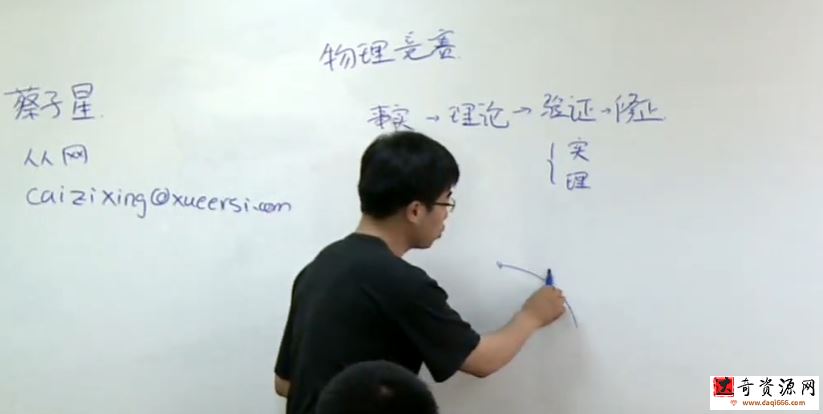 物理竞赛
蔡子星
人人网
caizixing@xueersi.com
事实→理论→验证→修正
{实
理
达奇资源网
www.daqi666.com